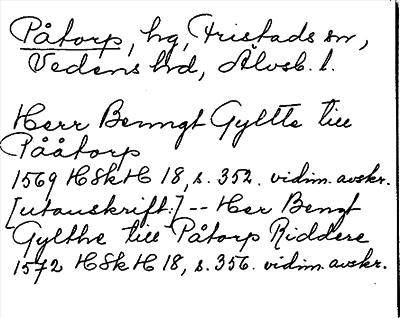 Påtorp, hg, Fristads sn,
Vedens hd, Älvsb. l.
Herr Benngt Gyltte till
Pååtorp
1569 HSkH 18, s. 352. vidim. avskr.
[utanskrift:] -- Her Bengt
Gylthe till Påtorp Riddere
1572 HSkH 18, s. 356. vidim. avskr.